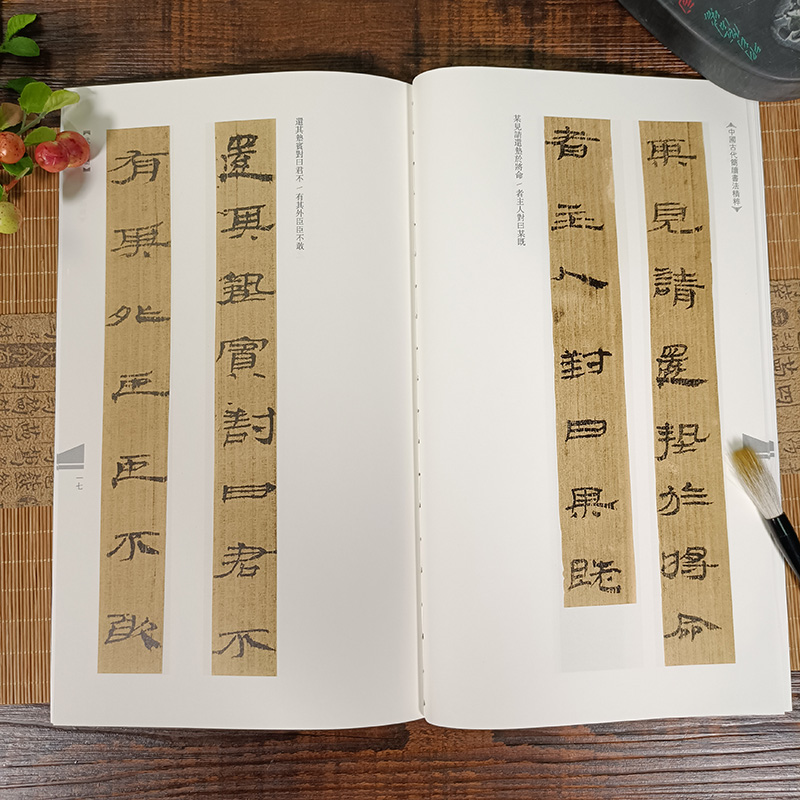 中國古代簡牘書法精粹
某見請還墊於將命
者主人對曰某既
某見請還墊於將命／者主人對曰某既
還其墊賓對曰君不／有其外臣臣不敢
還其墊賓對曰君不
有其外臣臣不敢
一七